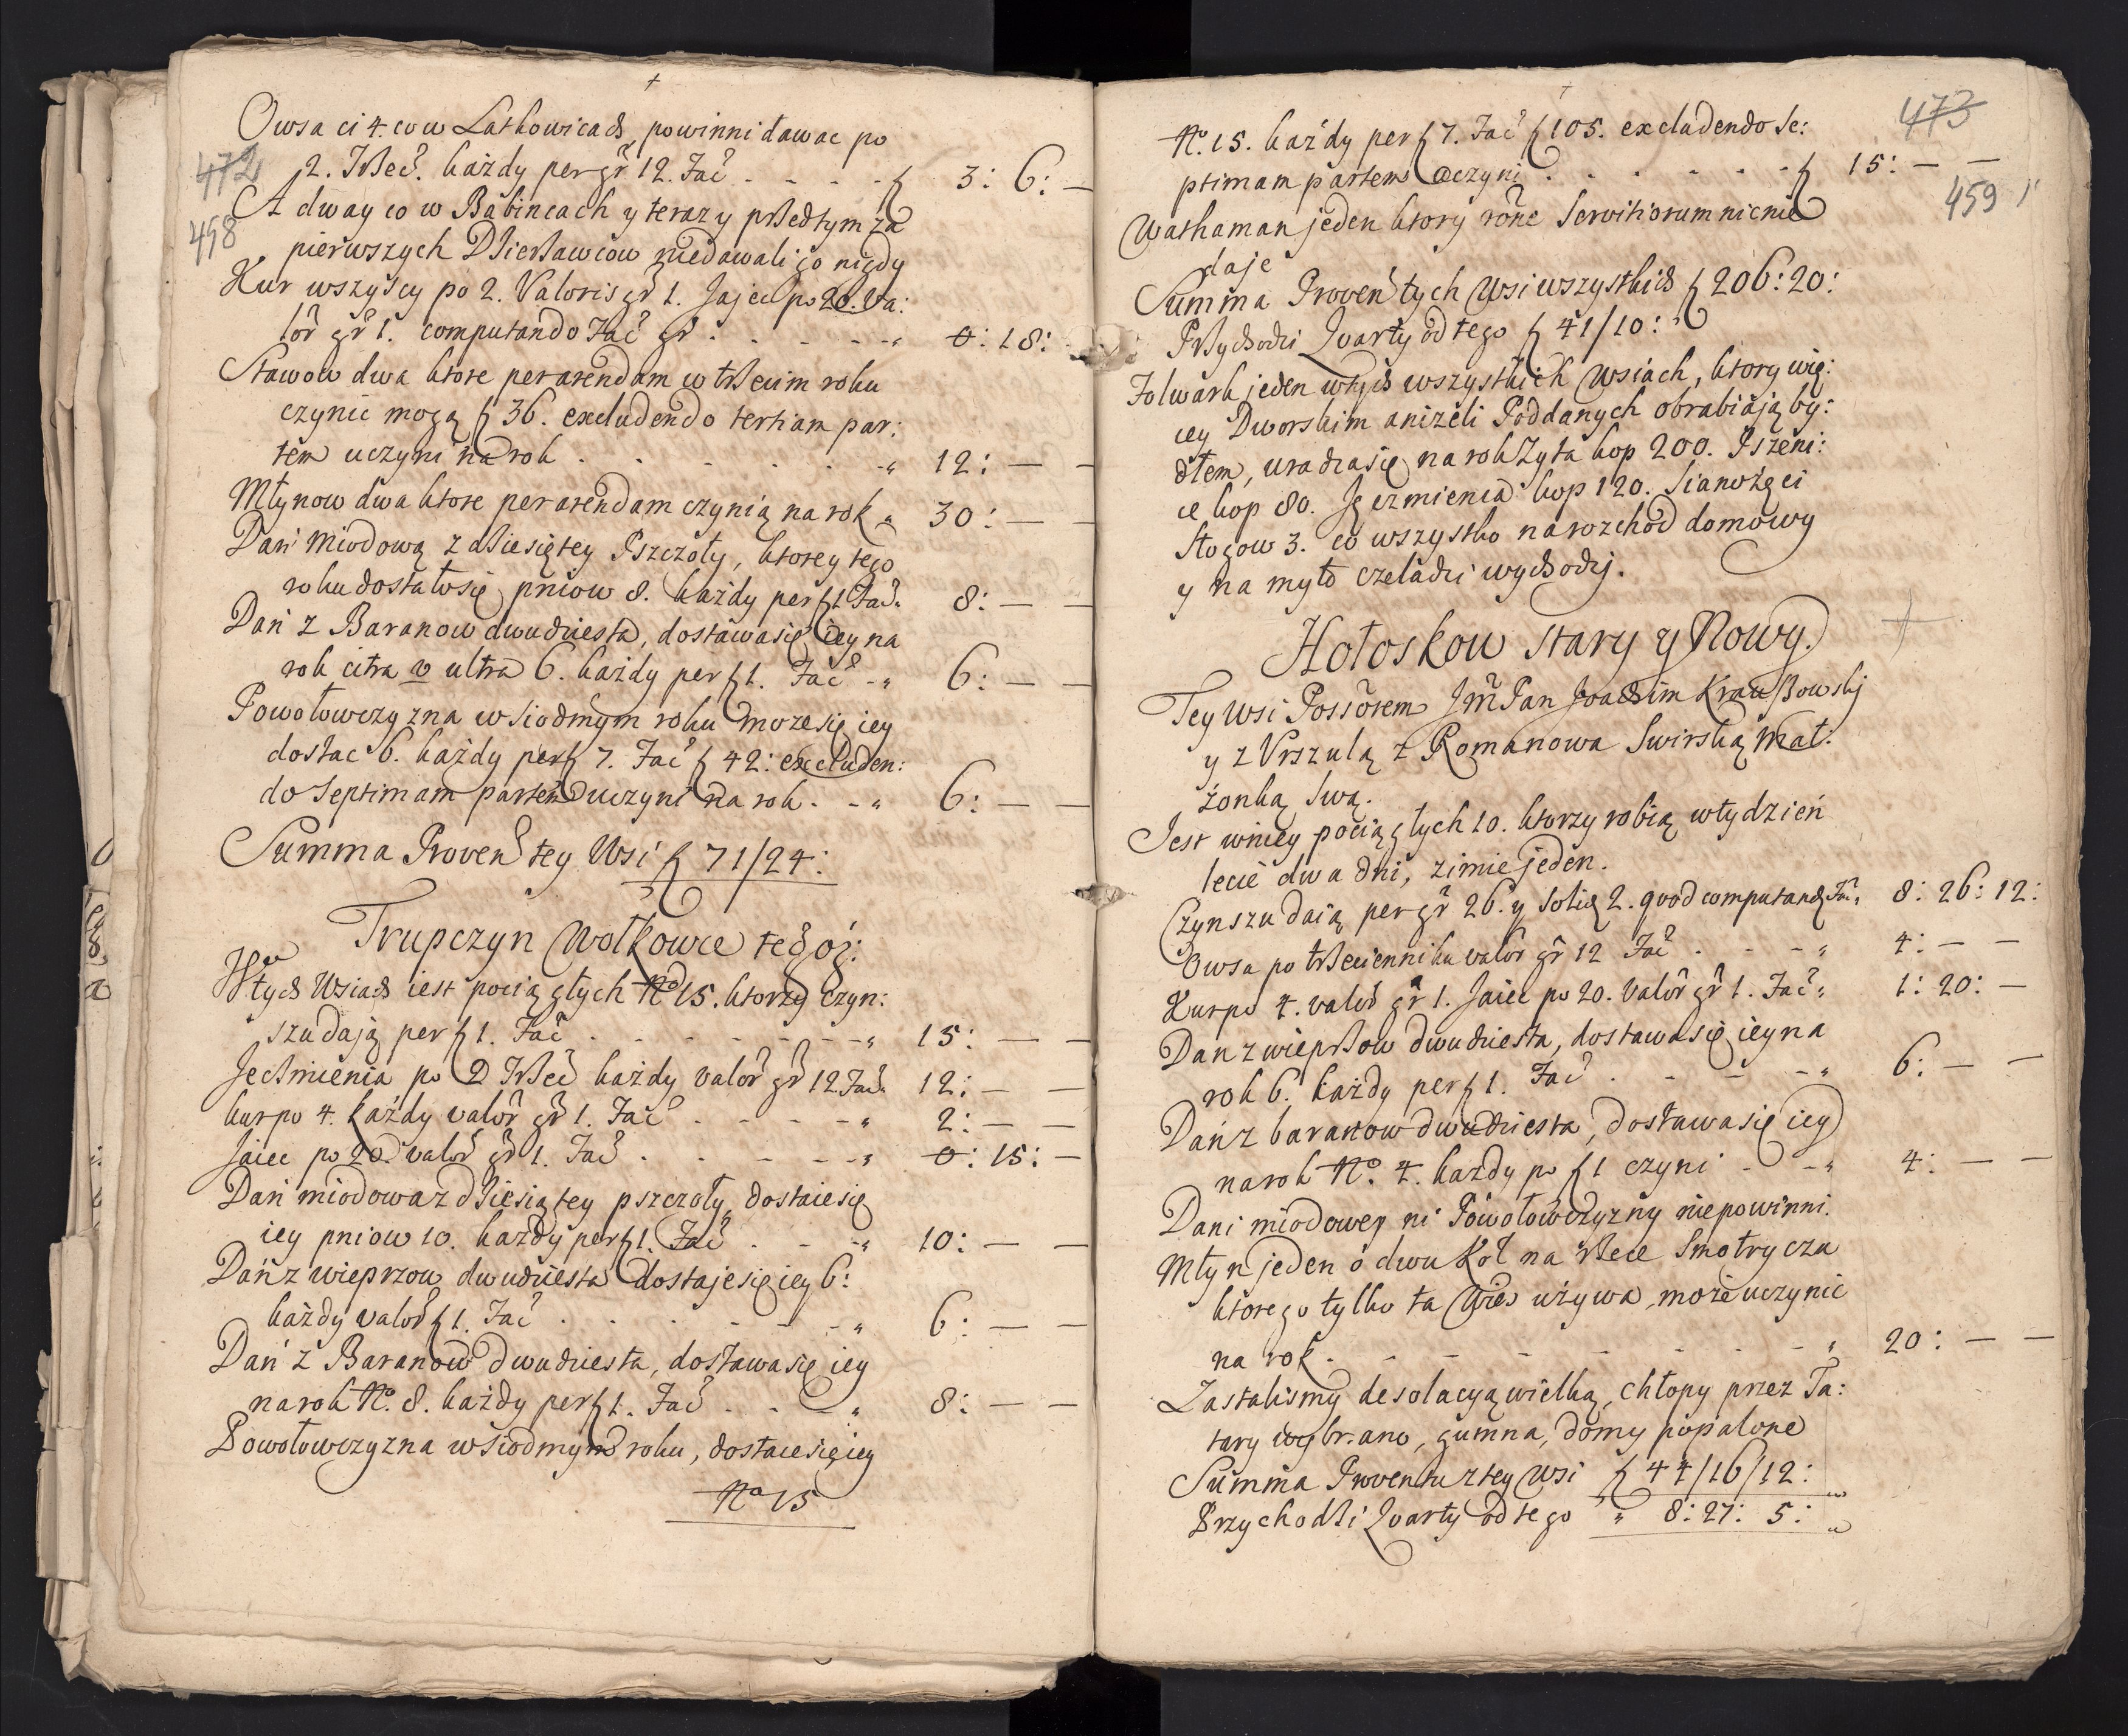 +
Owsa ci 4. co w Latkowicach, powinni dawac po
472
2. Trzeć. każdy per gr 12. Fać - - - - f 3: 6: —
A dway co w Babincach y terazy przedtym za
458
pierwszych Dzierżawcow niedawali go nigdy
Kur wszyscy po 2. Valoris gr 1. Jajec po 20. Va:
lor gr 1. computando Fać gr . - - - - " 0: 18:
Stawow dwa ktore per arendam w trzecim roku
czynic mogą f 36. excludendo tertiam par:
tem uczyni na rok . . . . . " 12: — —
Młynow dwa ktore per arendam czynią na rok " 30: — —
Dań Miodową z dziesiątey Pszczoły, ktorey tego
roku dostałosię pniow 8. każdy per f 1. Fać " 8: — —
Dań z Baranow dwudziesta, dostawasię iey na
rok citra v ultra 6. każdy per f 1. Fać - " 6: — —
Powołowczyzna w siodmym roku może się iey
dostac 6. każdy per f 7. Fać f 42: excluden:
do Septimam partem uczyni na rok . - " 6: — —
Summa Proven tey Wsi f 71/24:
Trupczyn Wołkowce tegoż:
W tych Wsiach iest pociągłych No 15. ktorzy czyn:
szu dają per f 1. Fać . - - - - - - " 15: — —
Jęczmienia po 2 Trzeć każdy valor gr 12 Fać " 12: — —
kur po 4. każdy valor gr 1. Fać . - - - - " 2: — —
Jaiec po 20. valor gr 1. Fać . . - - - " 0: 15: —
Dań miodowa z dziesiątey pszczoły, dostaie się
iey pniow 10. każdy per f 1. Fać . - - " 10: — —
Dań z wieprzow dwudziesta dostaje się iey 6:
każdy valor f 1. Fać . . . - - - " 6: — —
Dań z Baranow Dwudziesta, dostawa się iey
na rok No. 8. każdy per f 1. Fać . - - " 8: — —
Powołowczyzna w siodmym roku, dostaie się iey
No 15
+
473
No. 15. każdy per f 7. Fać f 105. excludendo Se:
ptimam partem uczyni . . . . . - f 15: — —
459
Wathaman jeden ktory rone Servitiorum nic nie
daje
Summa Proven tych Wsi wszystkich f 206:20:
Przychodzi Qvarty od tego f 41/10:
Folwark jeden w tych wszystkich Wsiach, ktory wię:
cey Dworskim aniżeli Poddanych obrabiają by:
dłem, uradza się na rok Żyta kop 200. Pszeni:
ce kop 80. Jęczmienia kop 120. Sianożęci
Stogow 3. co wszystko na rozchod domowy
y na myto czeladzi wychodzi.
Hołoskow Stary y Nowy.
Tey Wsi Possorem Jmć Pan Joachim Kraußowskj
y z Vrszulą z Romanowa Swirską Mał:
żonką Swą.
Jest w niey pociągłych 10. ktorzy robią w tydzień
lecie dwa dni, zimie jeden.
Czynszu daią per gr 26. y Solid 2. qvod computand. Fać " 8: 26: 12:
Owsa po trzecienniku valor gr 12 Fać . - - - " 4: — —
Kur po 4. valor gr 1. Jaiec po 20. Valor gr 1. Fać " 1: 20: —
Dan z wieprzow dwudziesta, dostawa się iey na
rok 6. każdy per f 1. Fać . - - - " 6: — —
Dań z baranow dwudziesta, dostawa się iey
na rok No. 4. każdy po f 1 czyni - - " 4: — —
Dani miodowey ni Powołowczyzny niepowinni.
Młyn jeden o dwu Koł na rzece Smotryczu
ktorego tylko ta Wieś używa, może uczynic
na rok . - - - - - - - " 20: — —
Zastalismy desolacyą wielką, chłopy przez Ta:
tary wybrano, gumna, domy popalone
Summa Proventu z tey Wsi f 44/16/12:
Przychodzi Qvarty od tego " 8: 27: 5: